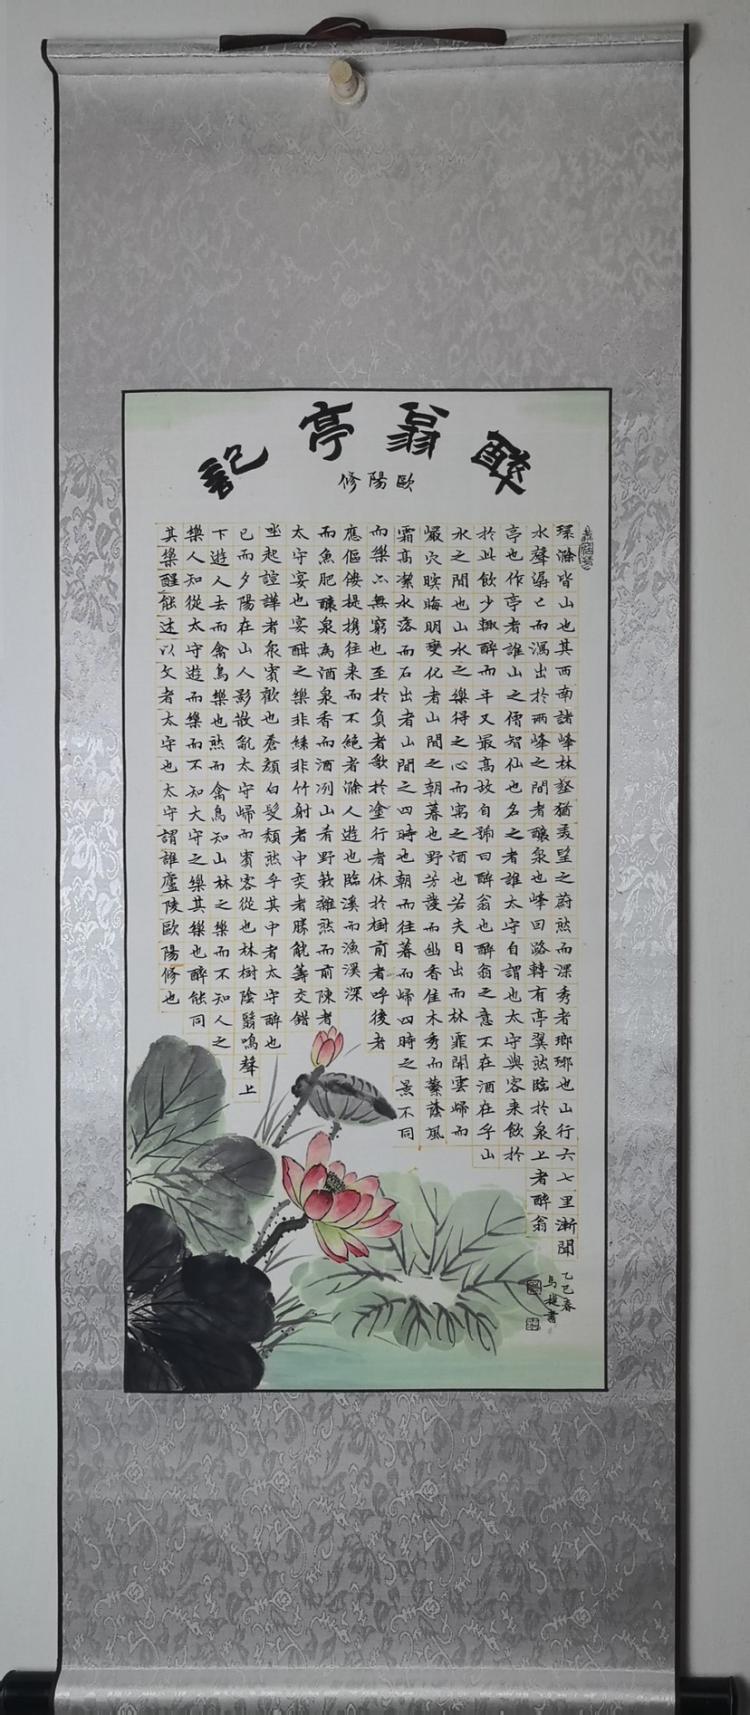 醉翁亭記
歐陽修
環滁皆山也其西南諸峰林壑猶美望之蔚然而深秀者瑯琊也山行六七里漸聞
水聲潺〻而瀉出於兩峰之間者釀泉也峰回路轉有亭翼然臨於泉上者醉翁
亭也作亭者誰山之僧智仙也名之者誰太守自謂也太守與客來飲於
於此飲少輒醉而年又最高故自號曰醉翁也醉翁之意不在酒在乎山
水之間也山水之樂得之心而寓之酒也若夫日出而林霏開雲歸而
巖穴暝晦明變化者山間之朝暮也野芳發而幽香佳木秀而繁蔭風
霜高潔水落而石出者山間之四時也朝而往暮而歸四時之景不同
而樂亦無窮也至於負者歌於塗行者休於樹前者呼後者
應傴僂提攜往來而不絕者滁人遊也臨溪而漁溪深
而魚肥釀泉為酒泉香而酒冽山肴野蔌雜然而前陳者
太守宴也宴酣之樂非絲非竹射者中奕者勝觥籌交錯
坐起諠譁者衆賓歡也蒼顏白髮頹然乎其中者太守醉也
已而夕陽在山人影散亂太守歸而賓客從也林樹陰翳鳴聲上
下遊人去而禽鳥樂也然而禽鳥知山林之樂而不知人之
樂人知從太守遊而樂而不知太守之樂其樂也醉能同
其樂醒能述以文者太守也太守謂誰廬陵歐陽修也
乙巳春
馬捷書